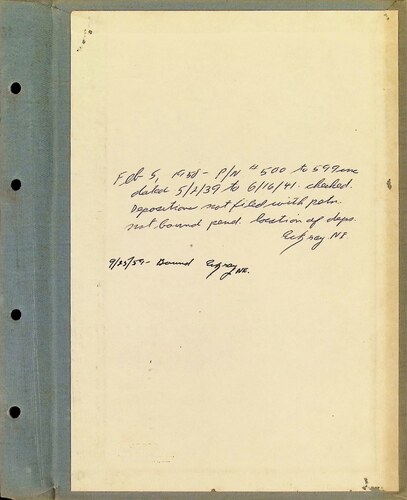 Feb 5, 1958- P/N # 500 to 599 inc
dated 5/2/39 to 6/16/41 checked.
Depositions not filed with petn.
not bound pend. location of deps.
NE
9/25/59- Bound NE.